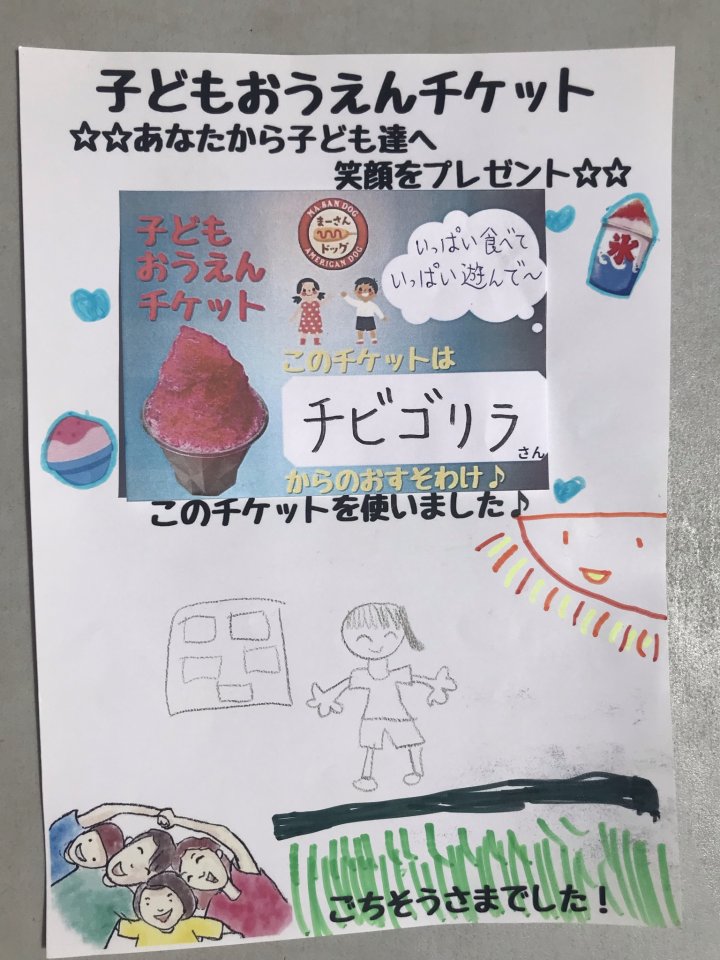 子どもおうえんチケット
☆☆あなたから子ども達へ
笑顔をプレゼント☆☆
子ども
おうえん
チケット
MA SAN DOG
まーさん
ドッグ
AMERICAN DOG
いっぱい食べて
いっぱい遊んで〜
氷
このチケットは
チビゴリラ
さん
からのおすそわけ♪
このチケットを使いました♪
ごちそうさまでした！